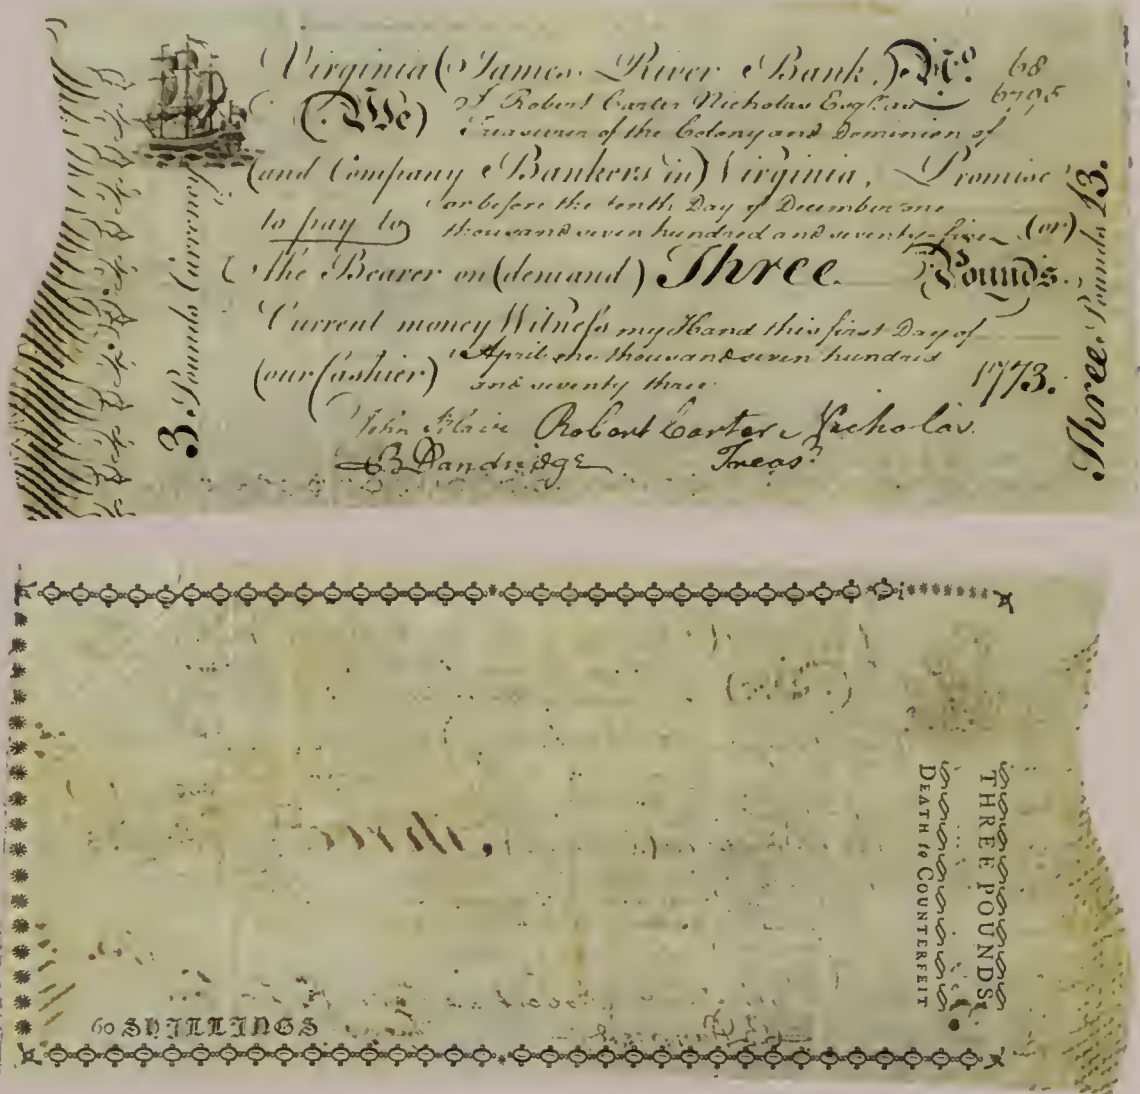 Virginia (James River Bank.) No. 68
(We) I Robert Carter Nicholas Esqr. 6795
Treasurer of the Colony and Dominion of
(and Company Bankers in) Virginia, Promise
to pay to or before the tenth Day of December one
thousand seven hundred and seventy-five (or)
the Bearer on (demand) Three Pounds.
Current money Witness my Hand this first Day of
(our Cashier) April one thousand seven hundred
and seventy three. 1773.
John Blair Robert Carter Nicholas
B Dandridge Treasr.
3 Pounds Currency
Three Pounds £3.
THREE POUNDS
DEATH to COUNTERFEIT
60 SHILLINGS